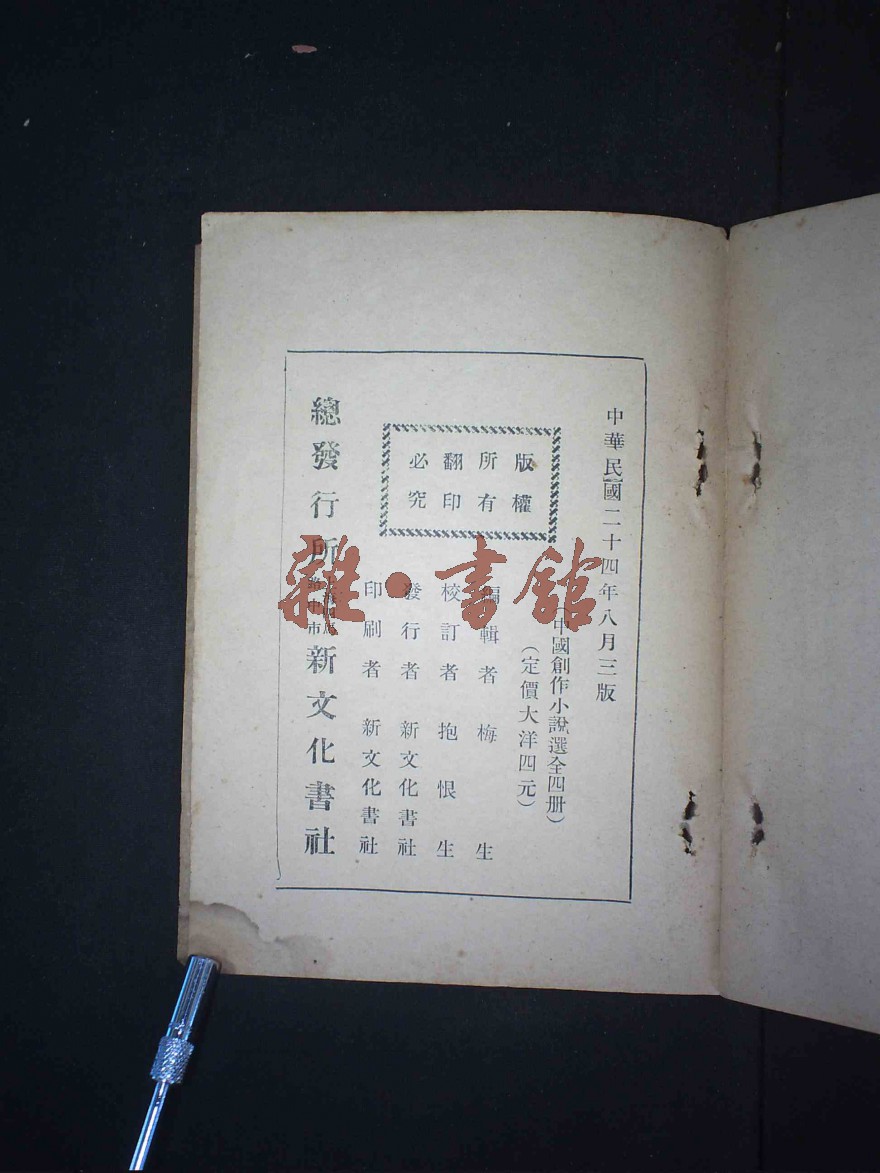 中華民國二十四年八月三版
(中國創作小說選全四册)
(定價大洋四元)
版權
所有
翻印
必究
編輯者 梅生
校訂者 抱恨生
發行者 新文化書社
印刷者 新文化書社
總發行所 中市 新文化書社
雜·書館